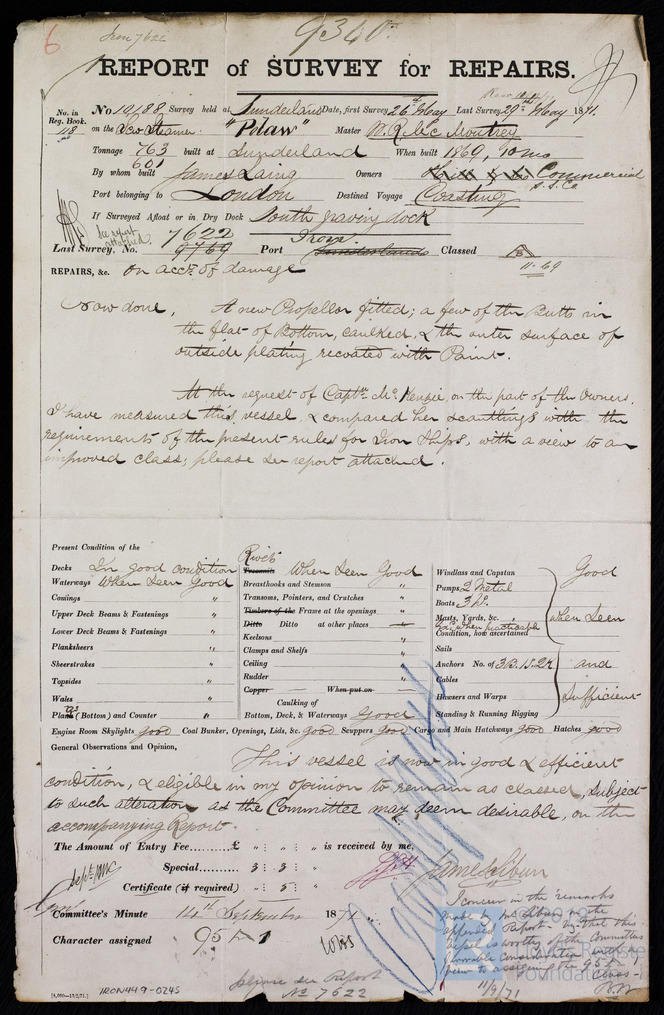 6
Iron 7622
9340
REPORT of SURVEY for REPAIRS.
No. in Reg. Book. 118
No 10188 Survey held at Sunderland Date, first Survey 26th May Last Survey 29th May 1871.
on the Scw Steamer "Pelaw" Master
Tonnage 763 built at Sunderland When built 1869,
601
By whom built James Laing Owners Commercial S.S. Co
Port belonging to London Destined Voyage Coasting
If Surveyed Afloat or in Dry Dock South graving dock
See report attached.
7622 Iron
Last Survey, No. 9769 Port Sunderland Classed A B
11-69
REPAIRS, &c. on acct. of damage
Now done, A new Propellor fitted; a few of the Butts in
the flat of Bottom, caulked, & the outer surface of
outside plating recoated with Paint.
At the request of Captn. McKenzie on the part of the Owners,
I have measured this vessel & compared her scantlings with the
requirements of the present rules for Iron Ships, with a view to an
improved class; please see report attached.
Present Condition of the
Decks In good condition
Waterways When Seen Good
Comings "
Upper Deck Beams & Fastenings "
Lower Deck Beams & Fastenings "
Planksheers "
Sheerstrakes "
Topsides "
Wales "
Plates (Bottom) and Counter "
Rivets
Treenails When Seen Good
Breasthooks and Stemson "
Transoms, Pointers, and Crutches "
Timbers of the Frame at the openings "
Ditto Ditto at other places —
Keelsons "
Clamps and Shelfs "
Ceiling "
Rudder "
Copper When put on —
Caulking of
Bottom, Deck, & Waterways Good
Windlass and Capstan
Pumps 2 Metal
Boats 3
Masts, Yards, &c.
when practicable
Condition, how ascertained
Sails
Anchors No. of 3B. 1S. 2K
Cables
Hawsers and Warps
Standing & Running Rigging
Good
when Seen
and
Sufficient
Engine Room Skylights good Coal Bunker, Openings, Lids, &c. good Scuppers good Cargo and Main Hatchways good Hatches good
General Observations and Opinion,
This vessel is now in good & efficient
condition, & eligible in my opinion to remain as classed, subject
to such alteration as the Committee may deem desirable, on the
accompanying Report.
The Amount of Entry Fee......... £ " : " : " is received by me,
Special...... 3 : 3 : "
Certificate (if required) " : 5 : "
James Sibun
Committee's Minute 14th September 1871.
Character assigned 95 A 1
I concur in the remarks
made by Mr Sibun in the
appended Report - viz that this
vessel is worthy of the Committee's
favorable consideration with a
view to assigning the 95 A 1
class -
11/9/71
please see Report
No 7622
[4,000—13/2/71.]
IRON449-0245